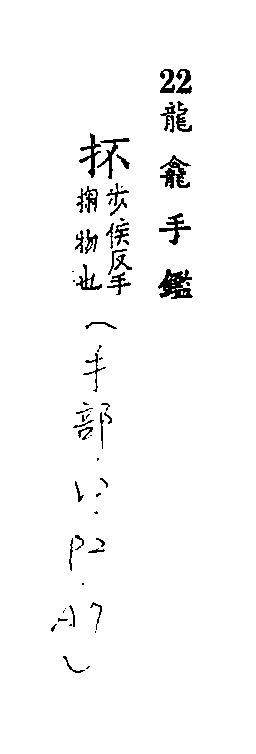 22龍龕手鑑
抔步侯反手
掬物也
(手部.V2.P2.A7)